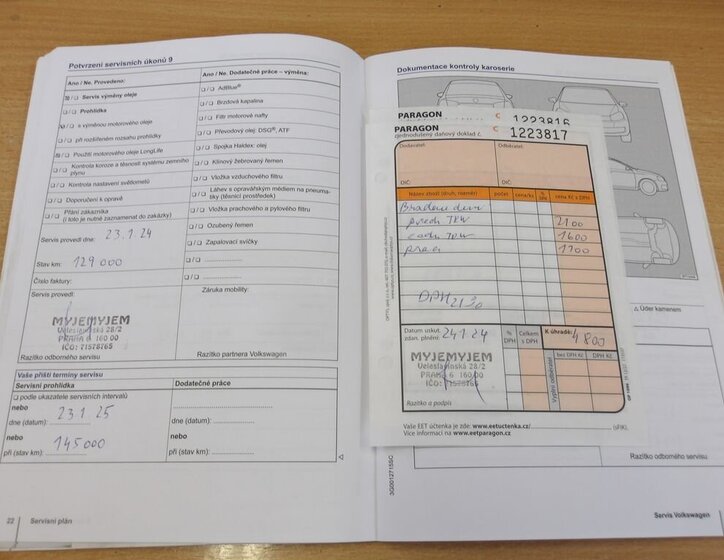 Potvrzení servisních úkonů 9
Ano / Ne. Provedeno:
Servis výměny oleje
Prohlídka
s výměnou motorového oleje
při rozšířeném rozsahu prohlídky
Použití motorového oleje LongLife
Kontrola koroze a těsnosti systému zemního plynu
Kontrola nastavení světlometů
Doporučení k opravě
Přání zákazníka
(i toto je nutné zaznamenat do zakázky)
Servis provedl dne: 23.1.24
Stav km: 129 000
Číslo faktury:
Servis provedl:
MYJEMYJEM
Veleslavínská 28/2
PRAHA 6 160 00
IČO: 71578765
Razítko odborného servisu
Ano / Ne. Dodatečné práce – výměna:
AdBlue®
Brzdová kapalina
Filtr motorové nafty
Převodový olej: DSG®, ATF
Spojka Haldex: olej
Klínový žebrovaný řemen
Vložka vzduchového filtru
Láhev s opravářským médiem na pneumatiky
(těsnicí prostředek)
Vložka prachového a pylového filtru
Ozubený řemen
Zapalovací svíčky
Záruka mobility:
Razítko partnera Volkswagen
Vaše příští termíny servisu
Servisní prohlídka
podle ukazatele servisních intervalů
nebo
dne (datum): 23.1.25
nebo
při (stav km): 145000
Dodatečné práce
dne (datum):
při (stav km):
22 Servisní plán
Dokumentace kontroly karoserie
PARAGON
1223816
PARAGON
1223817
zjednodušený daňový doklad č.
Dodavatel:
Odběratel:
DIČ:
DIČ:
Název zboží (druh, rozměr)
počet
cena/ks
% DPH
cena Kč s DPH
2100
1600
DPH 21%
Datum uskut. zdan. plnění: 24.1.24
% DPH
Celkem DPH
K úhradě: 4800
bez DPH Kč
s DPH Kč
Vyplní odběratel
MYJEMYJEM
Veleslavínská 28/2
PRAHA 6 160 00
IČO: 71578765
Razítko a podpis
Vaše EET účtenka je zde: www.eetuctenka.cz/
(sFIK).
Více informací na www.eetparagon.cz
Úder kamenem
Razítko odborného servisu
3G0012715SC
Servis Volkswagen